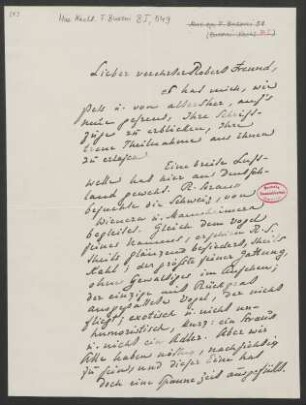 Mus. Nachl. F. Busoni B I, 549
Lieber verehrter Robert Freund,
es hat mich, wie
stets u. von altersher, auf's
neue gefreut, Ihre Schrift-
züge zu erblicken, Ihre
treue Theilnahme aus ihnen
zu erlesen
Eine breite Luft-
welle hat hier aus Deutsch-
land geweht. R. Strauss
besuchte die Schweiz, von
Wienern u. Mannheimern
begleitet. Gleich dem Vogel
seines Namens, erschien R. S.
theils glänzend befiedert, theils
kahl, der größte seiner Gattung,
ohne Gewaltiges im Ansehen;
der einzige mit Rückgrat
ausgestattete Vogel, der nicht
fliegt; exotisch u. nicht un-
humoristisch, kurz: ein Strauss
u. nicht ein Adler. Aber wir
Alle haben nöthig, nachsichtig
zu sein; und dieser Eine hat
doch eine ganze Zeit ausgefüllt.